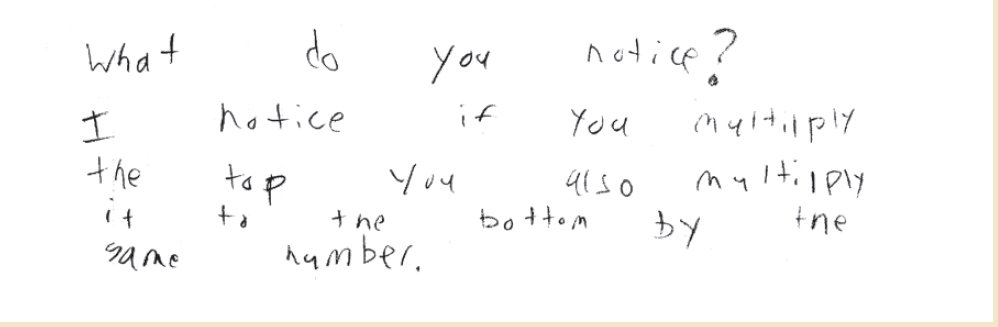 What do you notice?
I notice if you multilply
the top you also multilply
it to the bottom by the
same number.